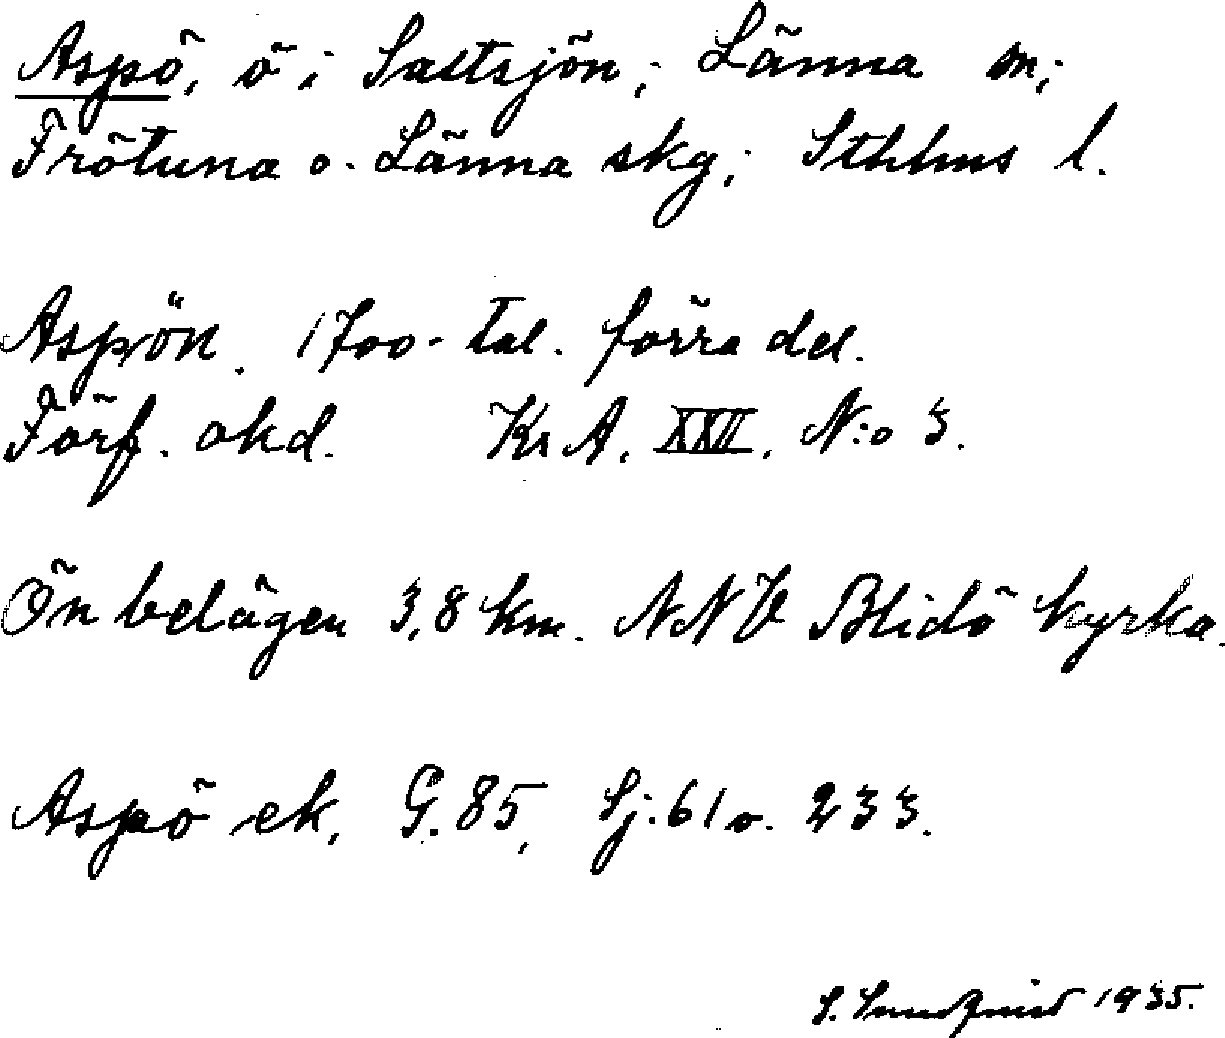 Aspö, ö i Saltsjön; Länna sn;
Frötuna o. Länna skg; Sthlms l.
Aspön. 1700-tal. förra del.
Förf. okd. Kr A. XXII. N:o 3.
Ön belägen 3,8 km. NNV Blidö kyrka.
Aspö ek. G. 85, Sj. 61 o. 233.
S. Sundquist 1935.